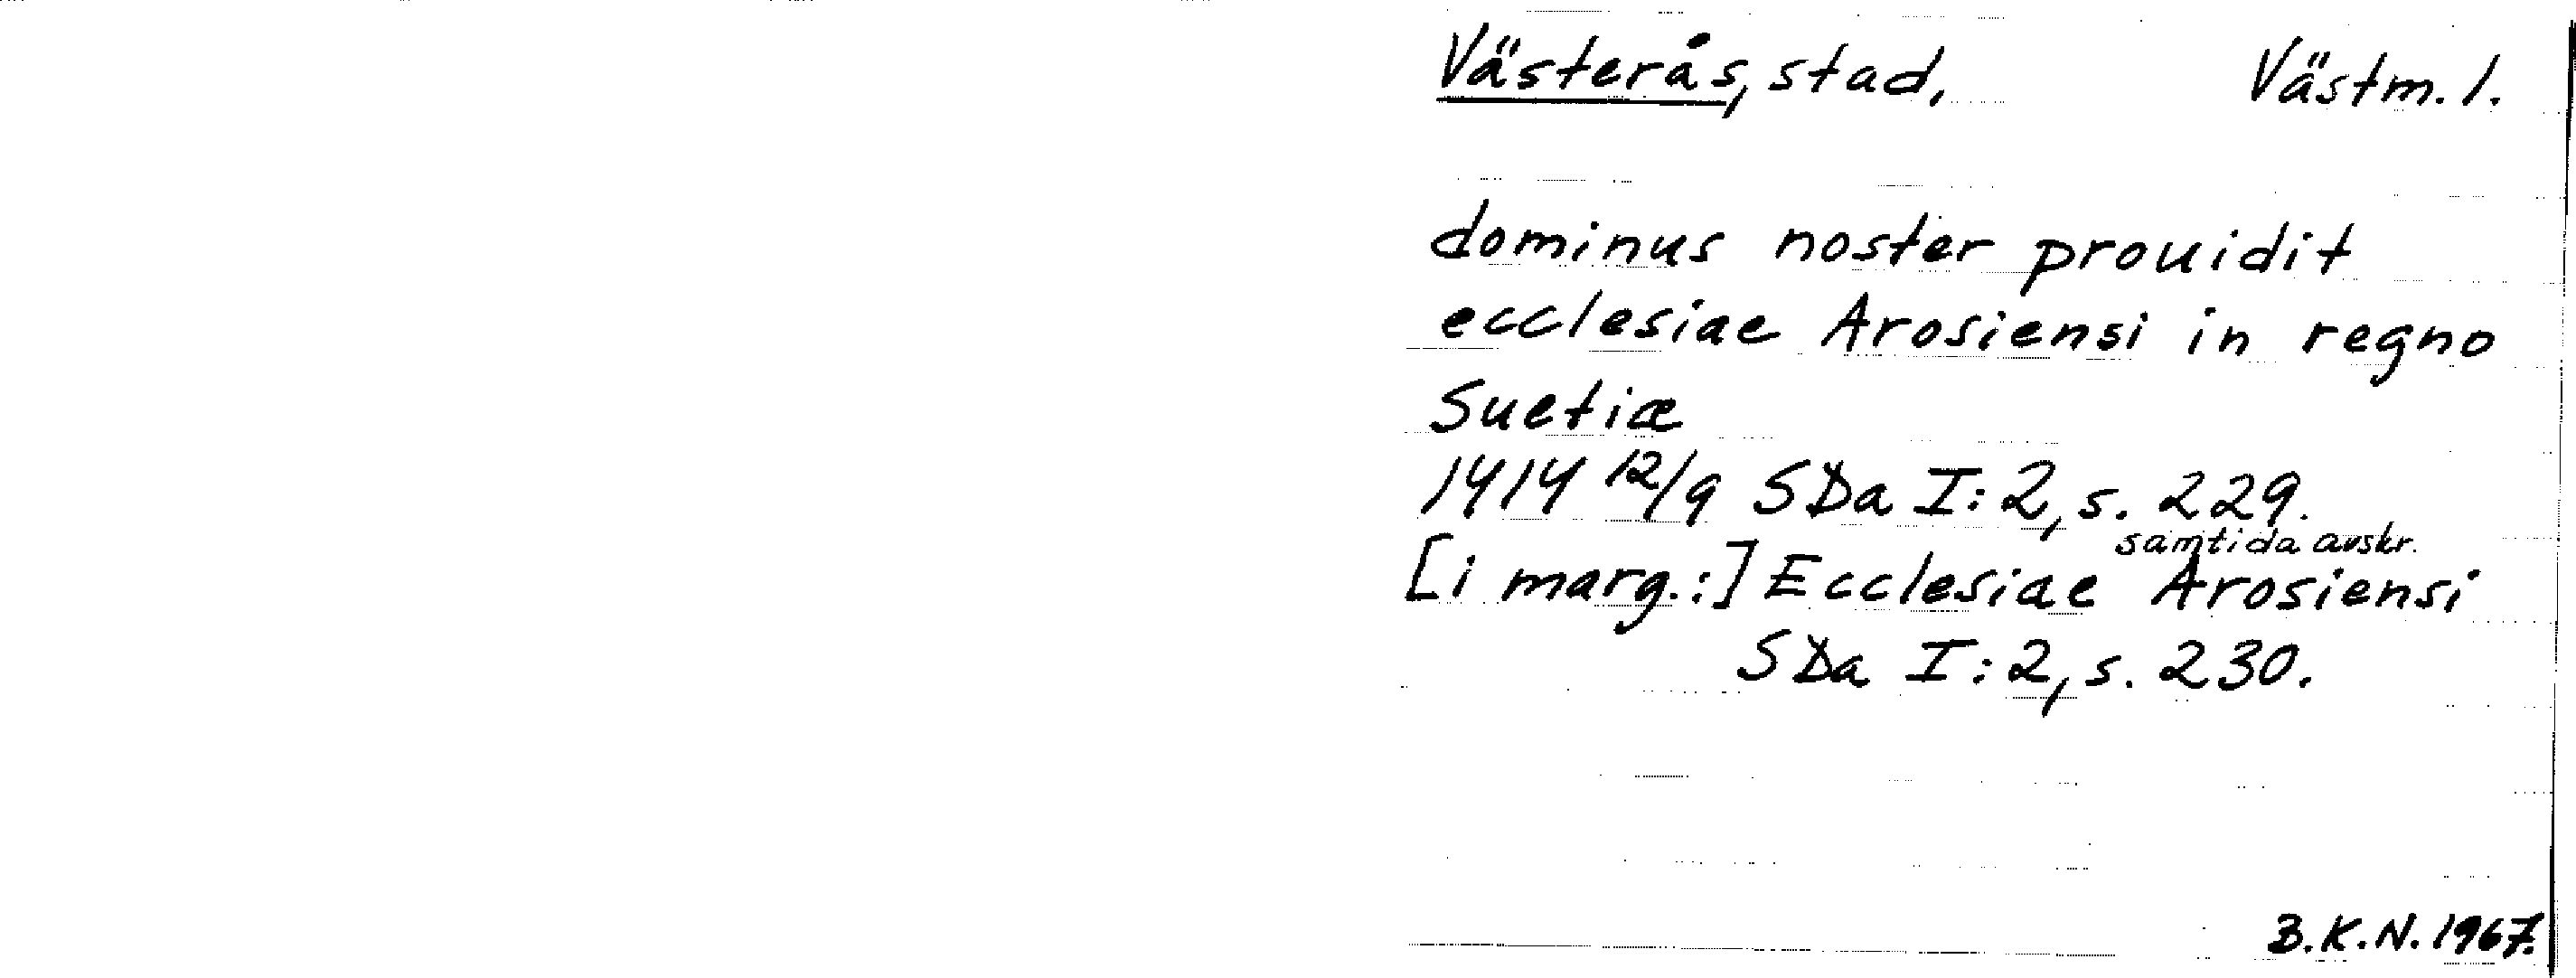 Västerås, stad, Västm. l.
dominus noster prouidit
ecclesiae Arosiensi in regno
Suetiæ
1414 12/9 SDa I:2, s. 229.
samtida avskr.
[i marg.:] Ecclesiae Arosiensi
SDa I:2, s. 230.
B.K.N. 1967.